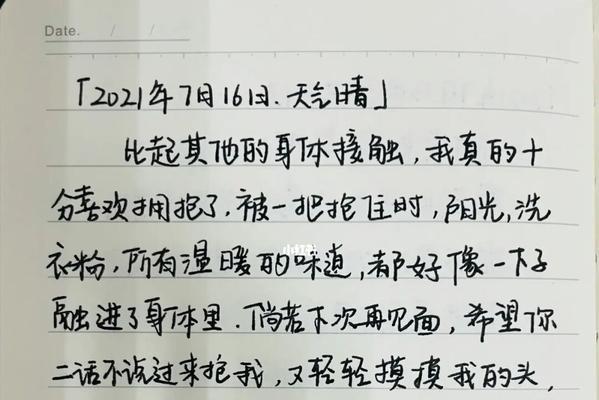 Date. / /
「2021年7月16日.天气晴」
比起其他的身体接触,我真的十
分喜欢拥抱了.被一把抱住时,阳光,洗
衣粉,所有温暖的味道,都好像一下子
融进了身体里.倘若下次再见面,希望你
二话不说过来抱我,又轻轻摸摸我的头,
小红书